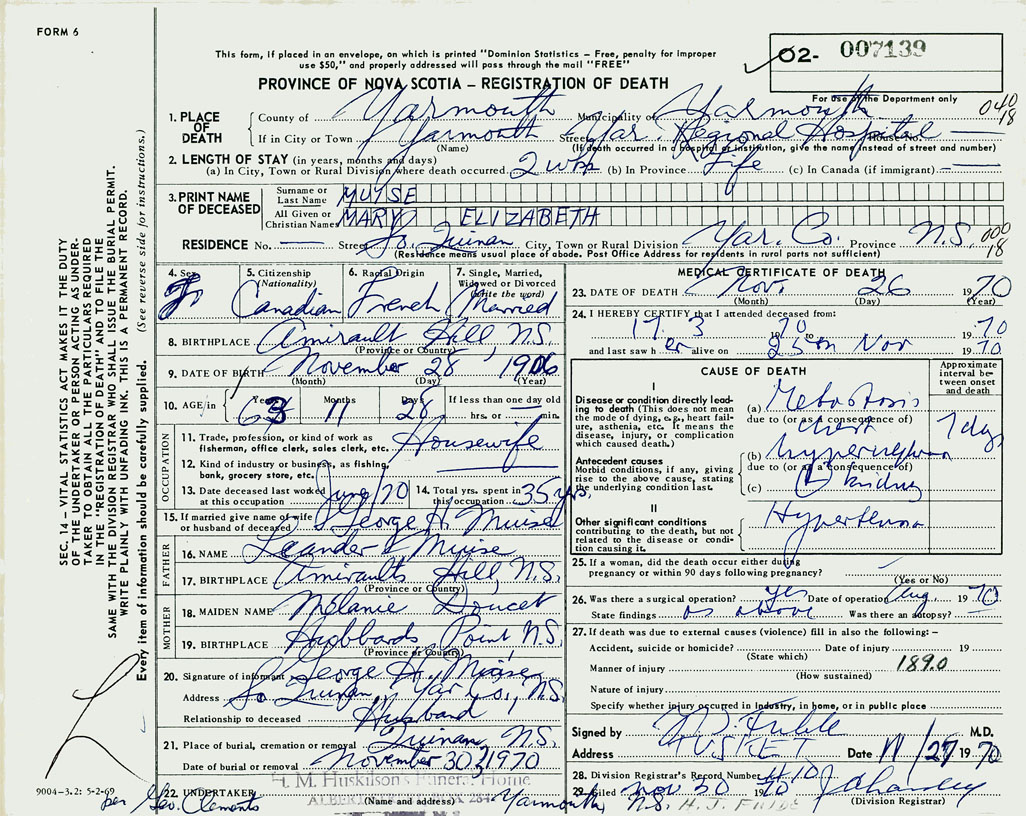 FORM 6
O2- 007139
This form, if placed in an envelope, on which is printed "Dominion Statistics – Free, penalty for improper
use $50," and properly addressed will pass through the mail "FREE"
For use of the Department only
PROVINCE OF NOVA SCOTIA – REGISTRATION OF DEATH
040
18
1. PLACE OF DEATH County of Yarmouth Municipality of Yarmouth
If in City or Town Yarmouth Yar. Regional Hospital House No. —
(Name) (If death occurred in a hospital or institution, give the name instead of street and number)
2. LENGTH OF STAY (in years, months and days)
(a) In City, Town or Rural Division where death occurred 2 wks (b) In Province Life (c) In Canada (if immigrant) —
3. PRINT NAME OF DECEASED Surname or Last Name MUISE
All Given or Christian Names MARY ELIZABETH
RESIDENCE No. — Street So. Quinan City, Town or Rural Division Yar. Co. Province N.S. 000
18
(Residence means usual place of abode. Post Office Address for residents in rural parts not sufficient)
4. Sex F. 5. Citizenship (Nationality) Canadian 6. Racial Origin French 7. Single, Married, Widowed or Divorced (Write the word) Married
8. BIRTHPLACE Amirault Hill, N.S.
(Province or Country)
9. DATE OF BIRTH November 28 1906
(Month) (Day) (Year)
10. AGE/in Years 63 Months 11 Days 28 If less than one day old
hrs. or min.
OCCUPATION
11. Trade, profession, or kind of work as Housewife
fisherman, office clerk, sales clerk, etc.
12. Kind of industry or business, as fishing,
bank, grocery store, etc.
13. Date deceased last worked at this occupation /70 14. Total yrs. spent in this occupation 35 yrs.
15. If married give name of wife or husband of deceased George H. Muise
FATHER
16. NAME Leander Muise
17. BIRTHPLACE Amiraults Hill, N.S.
(Province or Country)
MOTHER
18. MAIDEN NAME Melanie Doucet
19. BIRTHPLACE Hubbards Point N.S.
(Province or Country)
20. Signature of informant George H. Muise
Address So Quinan, Yar Co., N.S.
Relationship to deceased Husband
21. Place of burial, cremation or removal Quinan, N.S.
Date of burial or removal November 30, 1970
H. M. Huskilson's Funeral Home
22. UNDERTAKER
(Name and address) Yarmouth, N.S.
per Geo. Clements
MEDICAL CERTIFICATE OF DEATH
23. DATE OF DEATH Nov. 26 1970
(Month) (Day) (Year)
24. I HEREBY CERTIFY that I attended deceased from:
17 3 1970 to 1970
and last saw her alive on 25th Nov 1970
CAUSE OF DEATH
Approximate interval between onset and death
I
Disease or condition directly leading to death (This does not mean the mode of dying, e.g., heart failure, asthenia, etc. It means the disease, injury, or complication which caused death.)
(a)
due to (or as a consequence of) chest
Antecedent causes
Morbid conditions, if any, giving rise to the above cause, stating the underlying condition last.
(b) hypernephroma
due to (or as a consequence of)
(c) kidney
II
Other significant conditions contributing to the death, but not related to the disease or condition causing it. Hypertension
25. If a woman, did the death occur either during
pregnancy or within 90 days following pregnancy?
(Yes or No)
26. Was there a surgical operation? yes Date of operation Aug 1970
State findings as above Was there an autopsy?
27. If death was due to external causes (violence) fill in also the following: –
Accident, suicide or homicide? Date of injury 19
(State which)
Manner of injury 189.0
(How sustained)
Nature of injury
Specify whether injury occurred in industry, in home, or in public place
Signed by M.D.
Address TUSKET Date 11/27 1970
28. Division Registrar's Record Number
29. Filed Nov 30 1970
(Division Registrar)
SEC. 14 – VITAL STATISTICS ACT MAKES IT THE DUTY
OF THE UNDERTAKER OR PERSON ACTING AS UNDERTAKER TO OBTAIN ALL THE PARTICULARS REQUIRED
IN THE "REGISTRATION OF DEATH" AND TO FILE THE
SAME WITH THE DIVISION REGISTRAR WHO SHALL ISSUE THE BURIAL PERMIT.
WRITE PLAINLY WITH UNFADING INK. THIS IS A PERMANENT RECORD.
Every item of information should be carefully supplied. (See reverse side for instructions.)
9004–3.2: 5-2-69